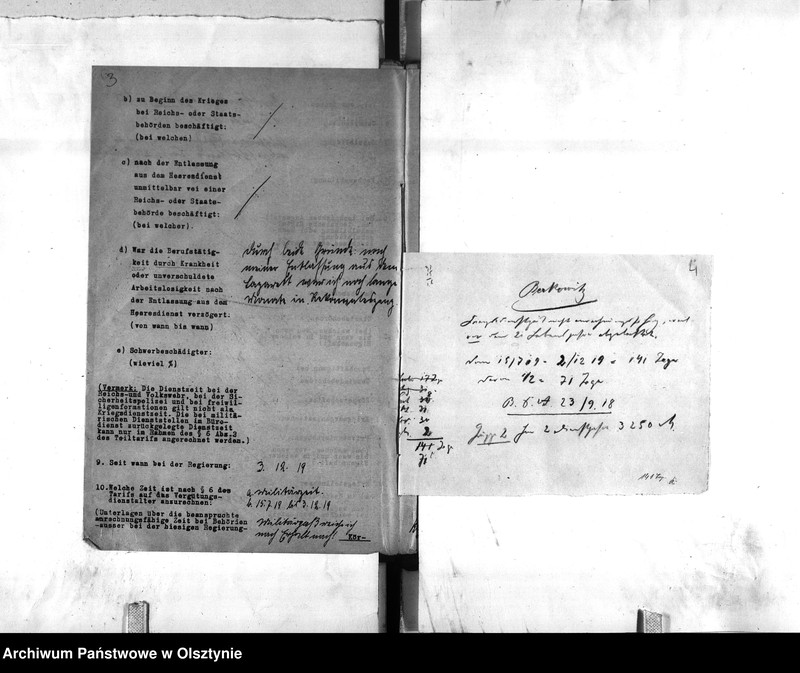 3
b) zu Beginn des Krieges
bei Reichs- oder Staats-
behörden beschäftigt:
(bei welchen)
c) nach der Entlassung
aus dem Heeresdienst
unmittelbar vei einer
Reichs- oder Staats-
behörde beschäftigt:
(bei welcher).
d) War die Berufstätig-
keit durch Krankheit
oder unverschuldete
Arbeitslosigkeit nach
der Entlassung aus dem
Heeresdienst verzögert:
(von wann bis wann)
Durch beide Gründe nach
meiner Entlassung aus dem
Lazarett war ich noch lange
Monate in
e) Schwerbeschädigter:
(wieviel %)
(Vermerk: Die Dienstzeit bei der
Reichs-und Volkswehr, bei der Si-
cherheitspolizei und bei freiwil-
ligenformationen gilt nicht als
Kriegsdienstzeit. Die bei militä-
rischen Dienststellen im Büro-
dienst zurückgelegte Dienstzeit
kann nur im Rahmen des § 6 Abs.3
des Teiltarifs angerechnet werden.)
9. Seit wann bei der Regierung:
3. 12. 19
10.Welche Zeit ist nach § 6 des
Tarifs auf das Vergütungs-
dienstalter anzurechnen:
a. Militärzeit.
b. 15.7.19 bis 3.12.19
(Unterlagen über die beanspruchte
anrechnungsfähige Zeit bei Behörden
ausser bei der hiesigen Regierung-
Militärpaß reiche ich
nach Erhalt nach!
Kör-
Berkowitz
vor dem 20 Lebensjahre
vom 15/7 19 - 2/12 19 = 141 Tage
davon 1/2 = 71 Tage
23/9. 18
2 3250 M.
141 Tg
71
Archiwum Państwowe w Olsztynie